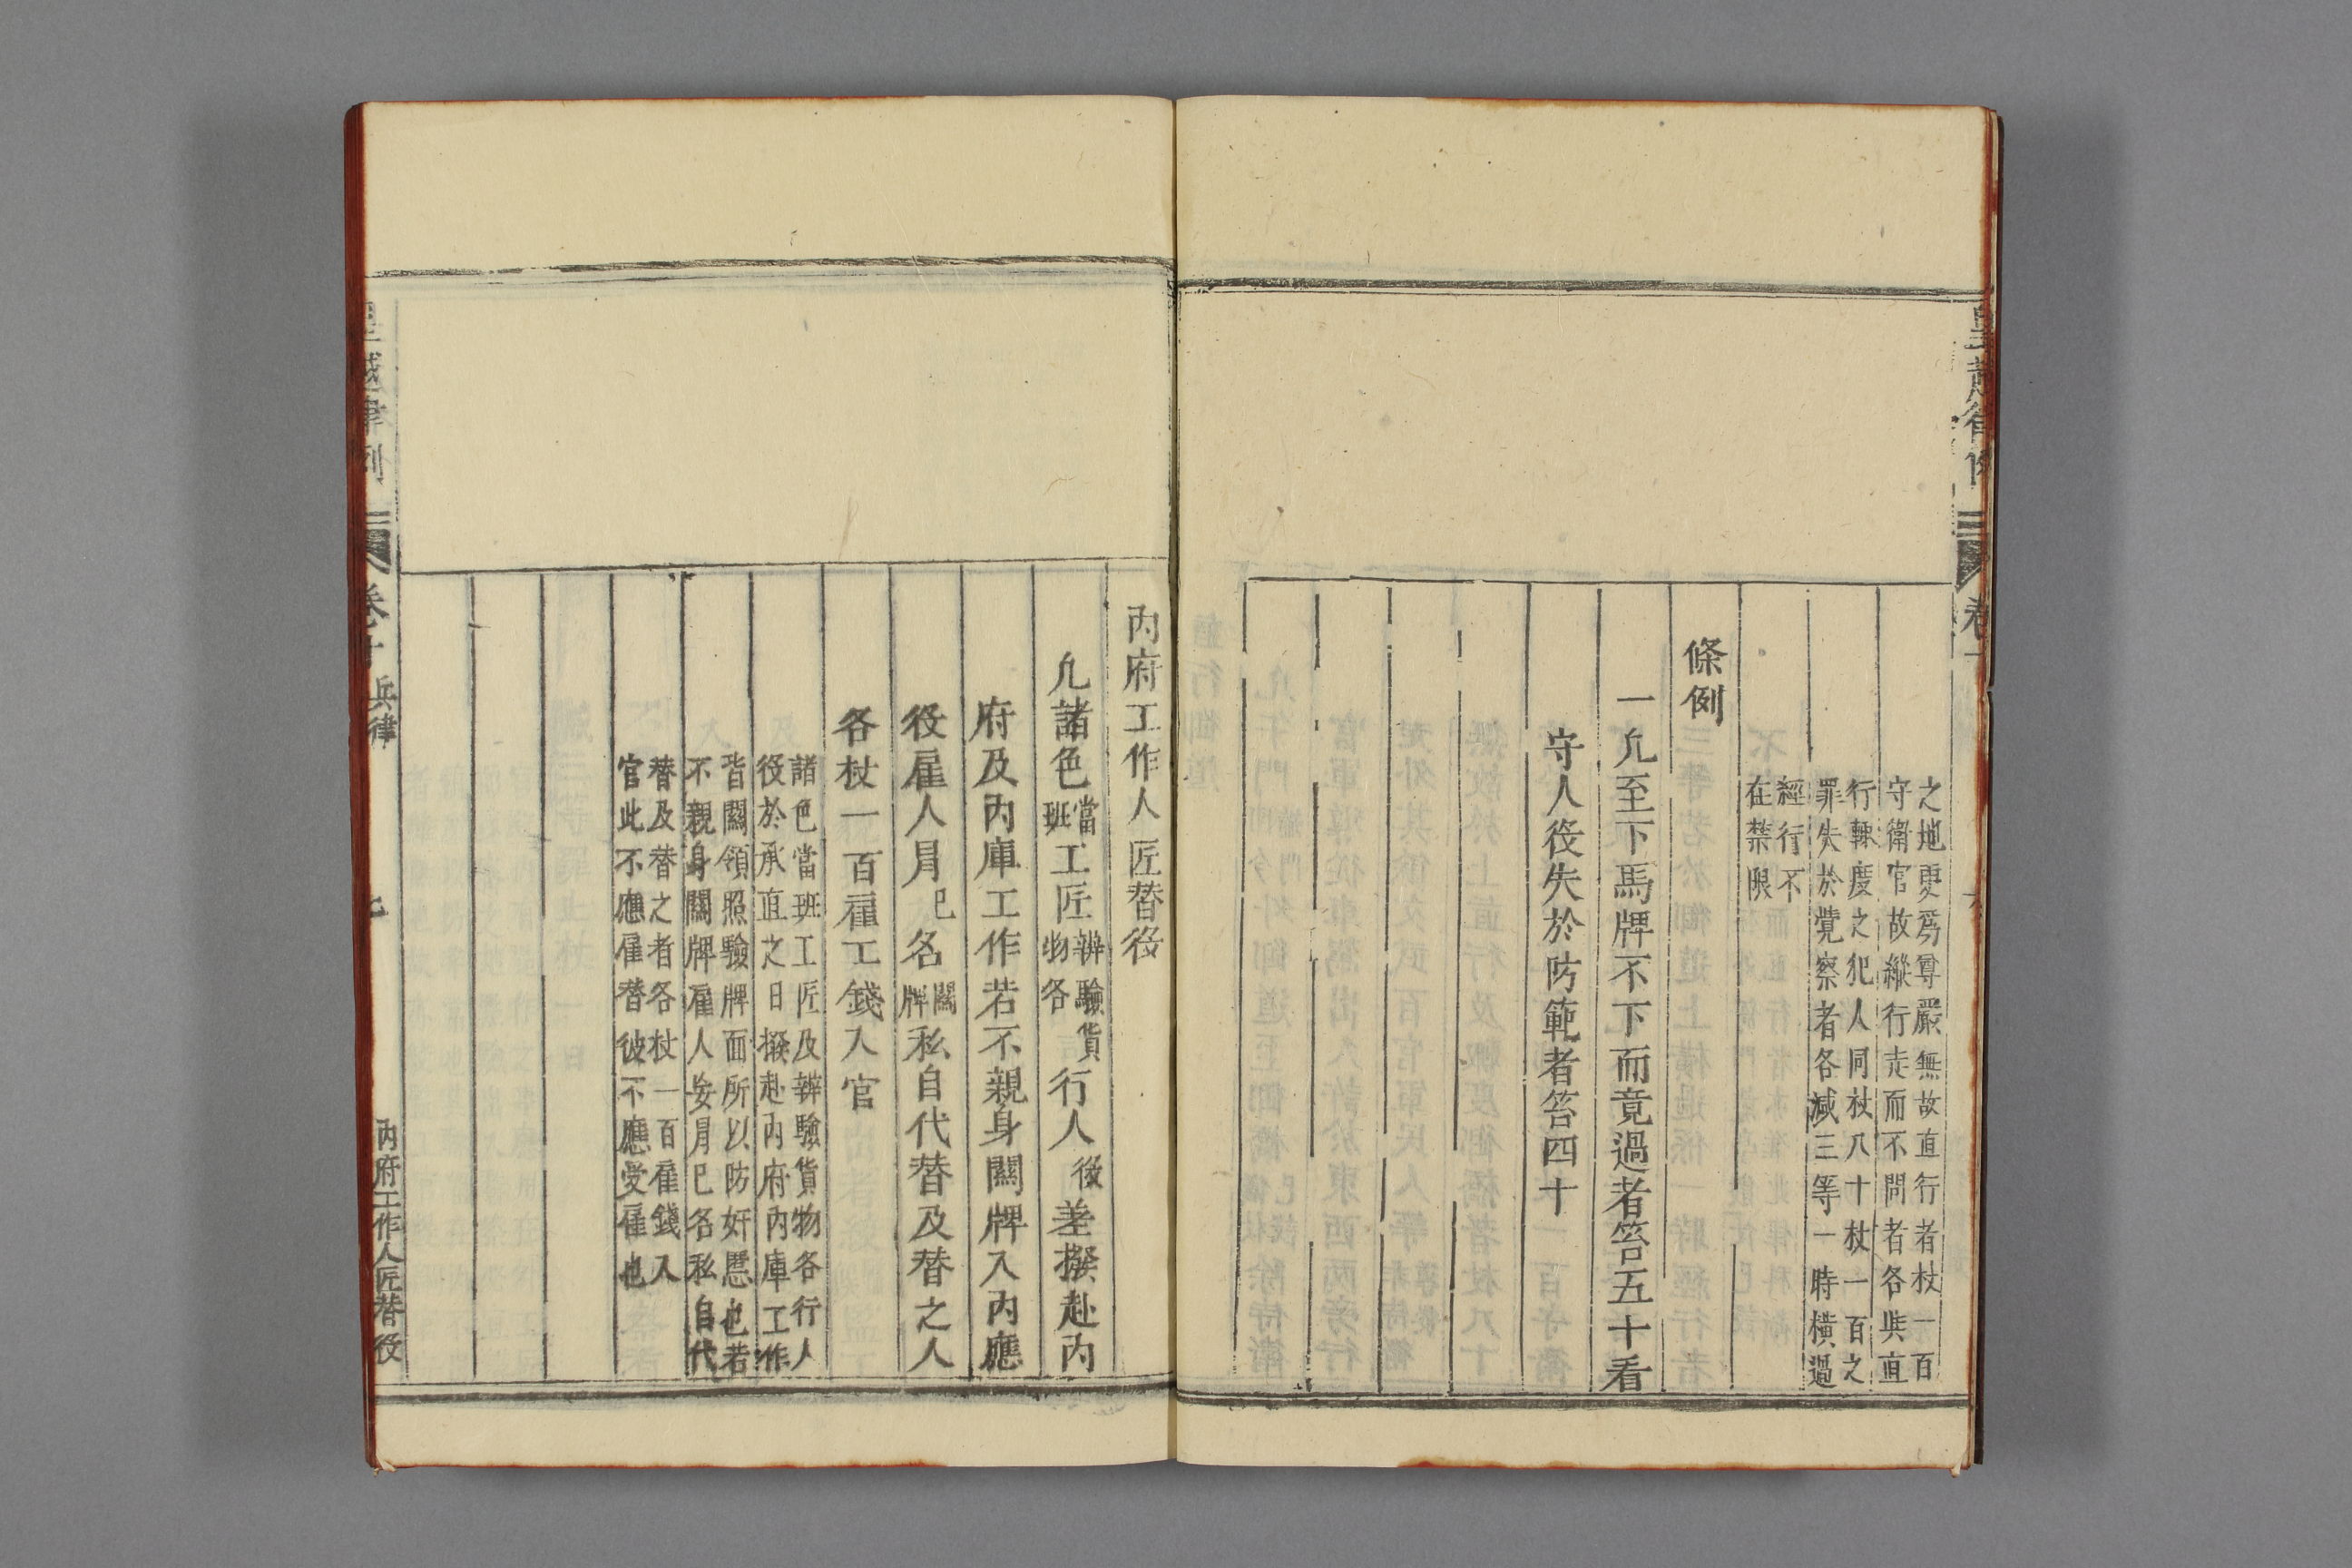 皇越律例
卷十
之地更爲尊嚴無故直行者杖一百
守衛官故縱行走而不問者各與直
行輙度之犯人同杖八十杖一百之
罪失於覺察者各减三等一時橫過
經行不
在禁限
條例
一凢至下馬牌不下而竟過者笞五十看
守人役失於防範者笞四十
內府工作人匠替役
凢諸色當班工匠辦驗貨物各行人役差撥赴內
府及內庫工作若不親身關牌入內應
役雇人冐已名關牌私自代替及替之人
各杖一百雇工錢入官
諸色當班工匠及辦驗貨物各行人
役於承直之日撥赴內府內庫工作
皆關領照驗牌面所以防奸慝也若
不親身關牌雇人妄冐已名私自代
替及替之者各杖一百雇錢入
官此不應雇替彼不應受雇也
皇越律例
卷十 兵律
七
內府工作人匠替役